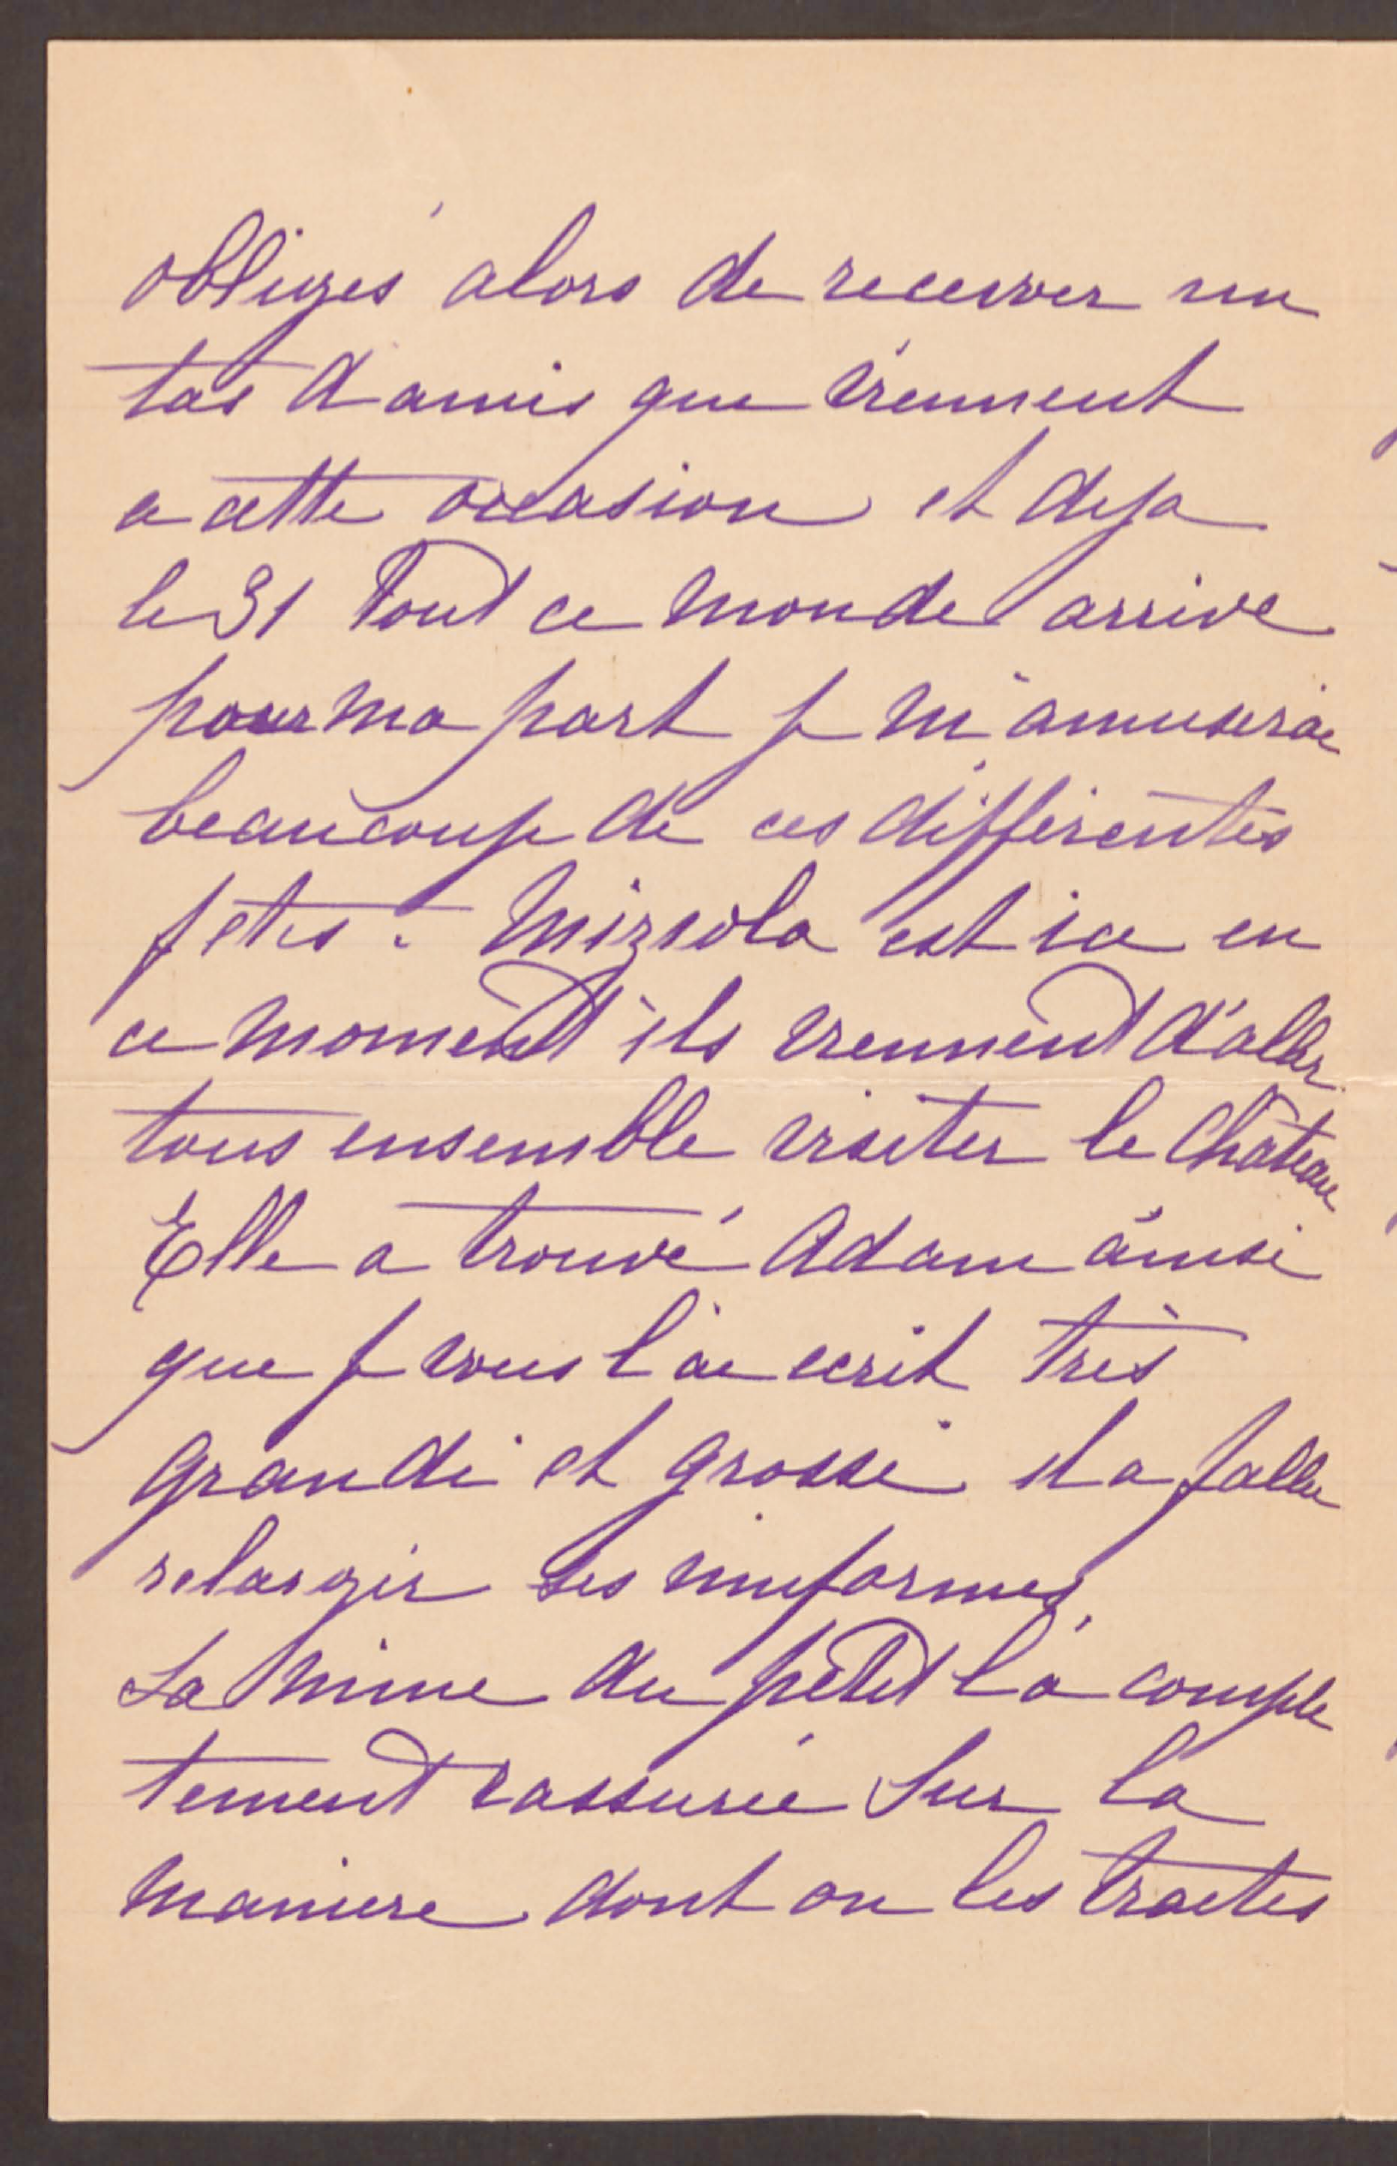 obligés alors de recevoir un
tas d'amis que viennent
a cette occasion et deja
le 31 tout ce monde arrive
pour ma part je m'amuserai
beaucoup de ces différentes
fêtes. Miziola est ici en
ce moment ils viennent d'aller
tous ensemble visiter le Château
Elle a trouvé Adam ainsi
que je vous l'ai ecrit très
grandi et grossi il a fallu
relargir ses uniformes,
La mine du petit l'a comple
tement rassurée sur la
maniere dont on les traites